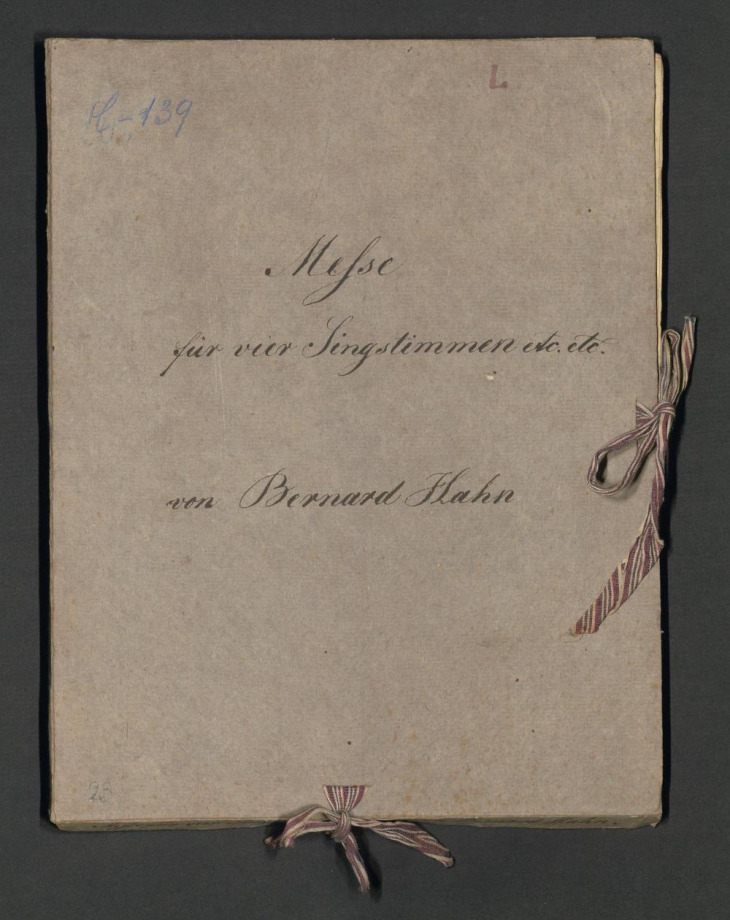 L
-139
Messe
für vier Singstimmen etc. etc.
von Bernard Hahn
23